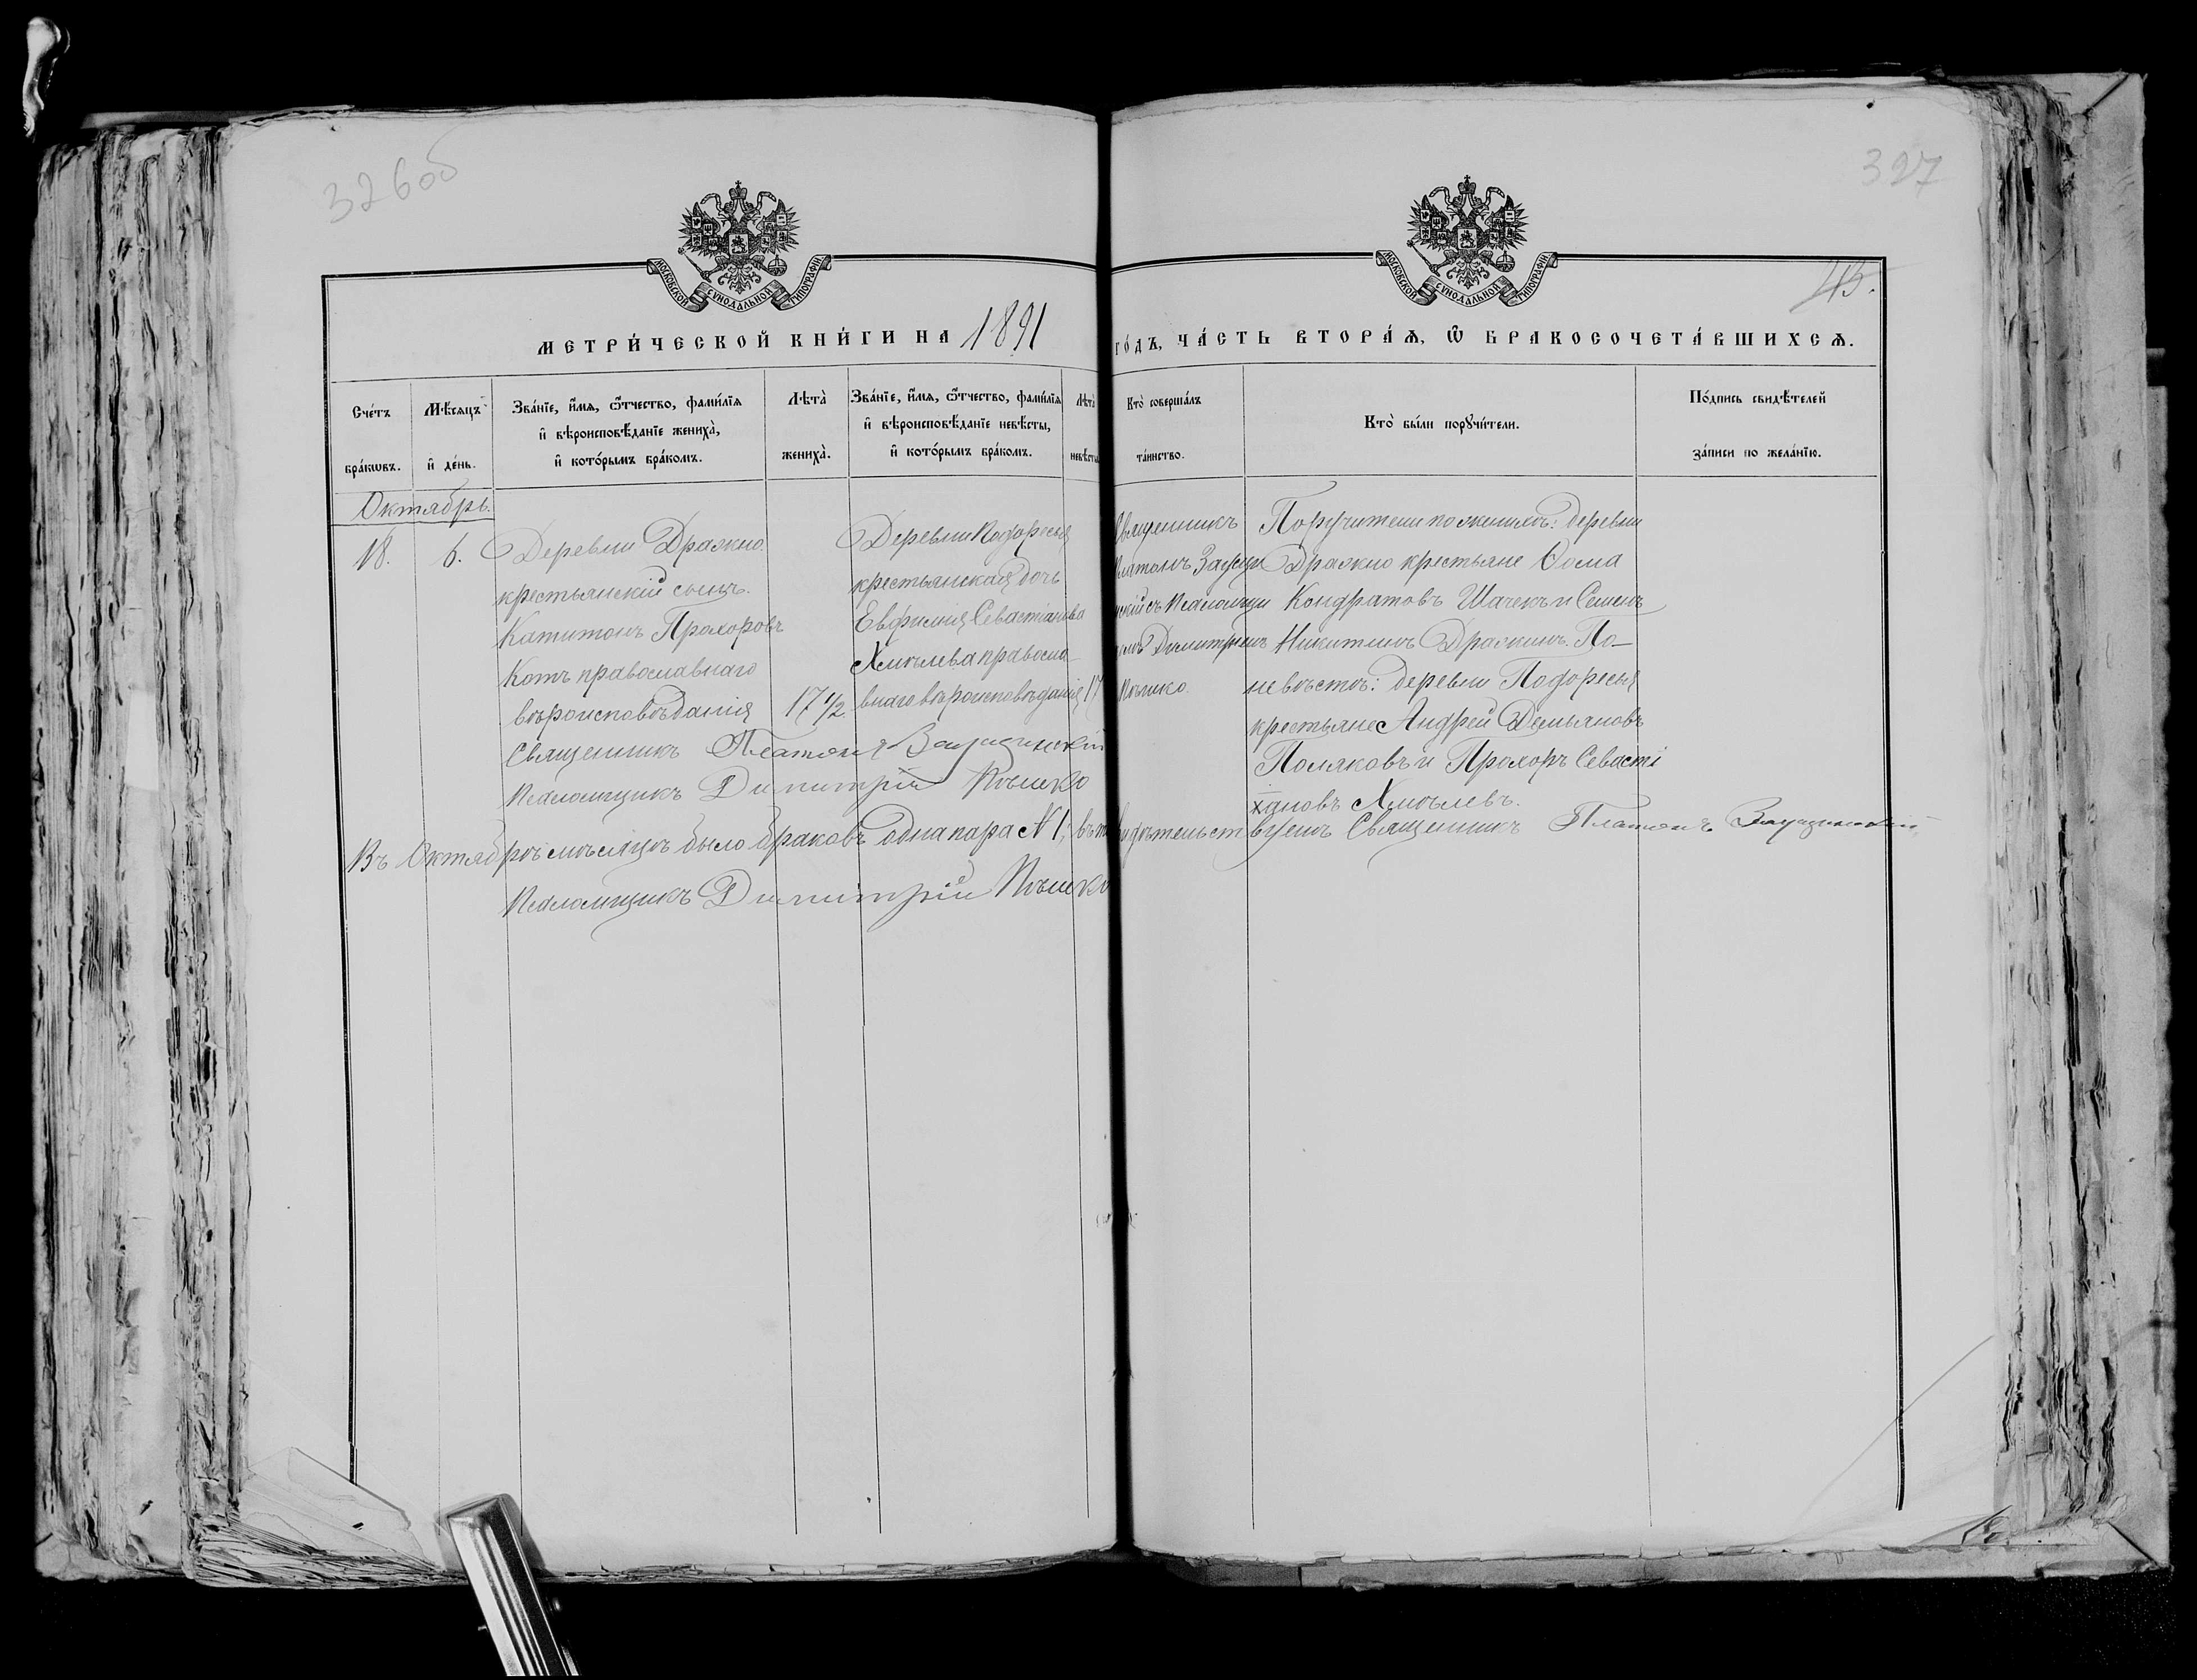 326об
327
МОСКОВСКОЙ СѴНОДАЛЬНОЙ ТИПОГРАФІИ
МОСКОВСКОЙ СѴНОДАЛЬНОЙ ТИПОГРАФІИ
45.
МЕТРИ́ЧЕСКОЙ КНИ́ГИ НА 1891 ГО́ДЪ, ЧА́СТЬ ВТОРА́Ѧ, Ѽ БРАКОСОЧЕТА́ВШИХСѦ.
Сче́тъ бра́кѡвъ.
Мѣ́сяцъ и҆ де́нь.
Зва́нїе, и҆́мѧ, ѻ҆́тчество, фами́лїѧ
и҆ вѣроисповѣ́данїе женихѐ,
и҆ кото́рымъ бра́комъ.
Лѣта̀ жениха̀.
Зва́нїе, и҆́мѧ, ѻ҆́тчество, фами́лїѧ
и҆ вѣроисповѣ́данїе невѣ́сты,
и҆ кото́рымъ бра́комъ.
Лѣта̀ невѣ́сты
Кто̀ соверша́лъ та́инство.
Кто̀ бы́ли порꙋчи́тели.
По́дпись свидѣ́телей
за́писи по жела́нїю.
Октябрь.
18.
6.
Деревни Дражно
крестьянскій сынъ
Капитонъ Прохоровъ
Котъ православнаго
вѣроисповѣданія
17 1/2.
Деревни Подоресья
крестьянская дочь
Евфимія Севастіанова
Хмѣлева правосла-
внаго вѣроисповѣданія
17
Священникъ
Платонъ
скій съ Псаломщи
комъ Димитріемъ
Поручители по женихѣ: деревни
Дражно крестьяне Ѳома
Кондратовъ Шачекъ и Семенъ
Никитинъ Дражинъ. По
невѣстѣ: деревни Подоресья
крестьяне Андрей Демьяновъ
Поляковъ и Прохоръ Севасті
ановъ Хмѣлевъ.
Священникъ Платонъ
Псаломщикъ Димитрій
Въ Октябрѣ мѣсяцѣ было браковъ одна пара № 1; въ томъ свидѣтельствуемъ Священникъ Платонъ
Псаломщикъ Димитрій